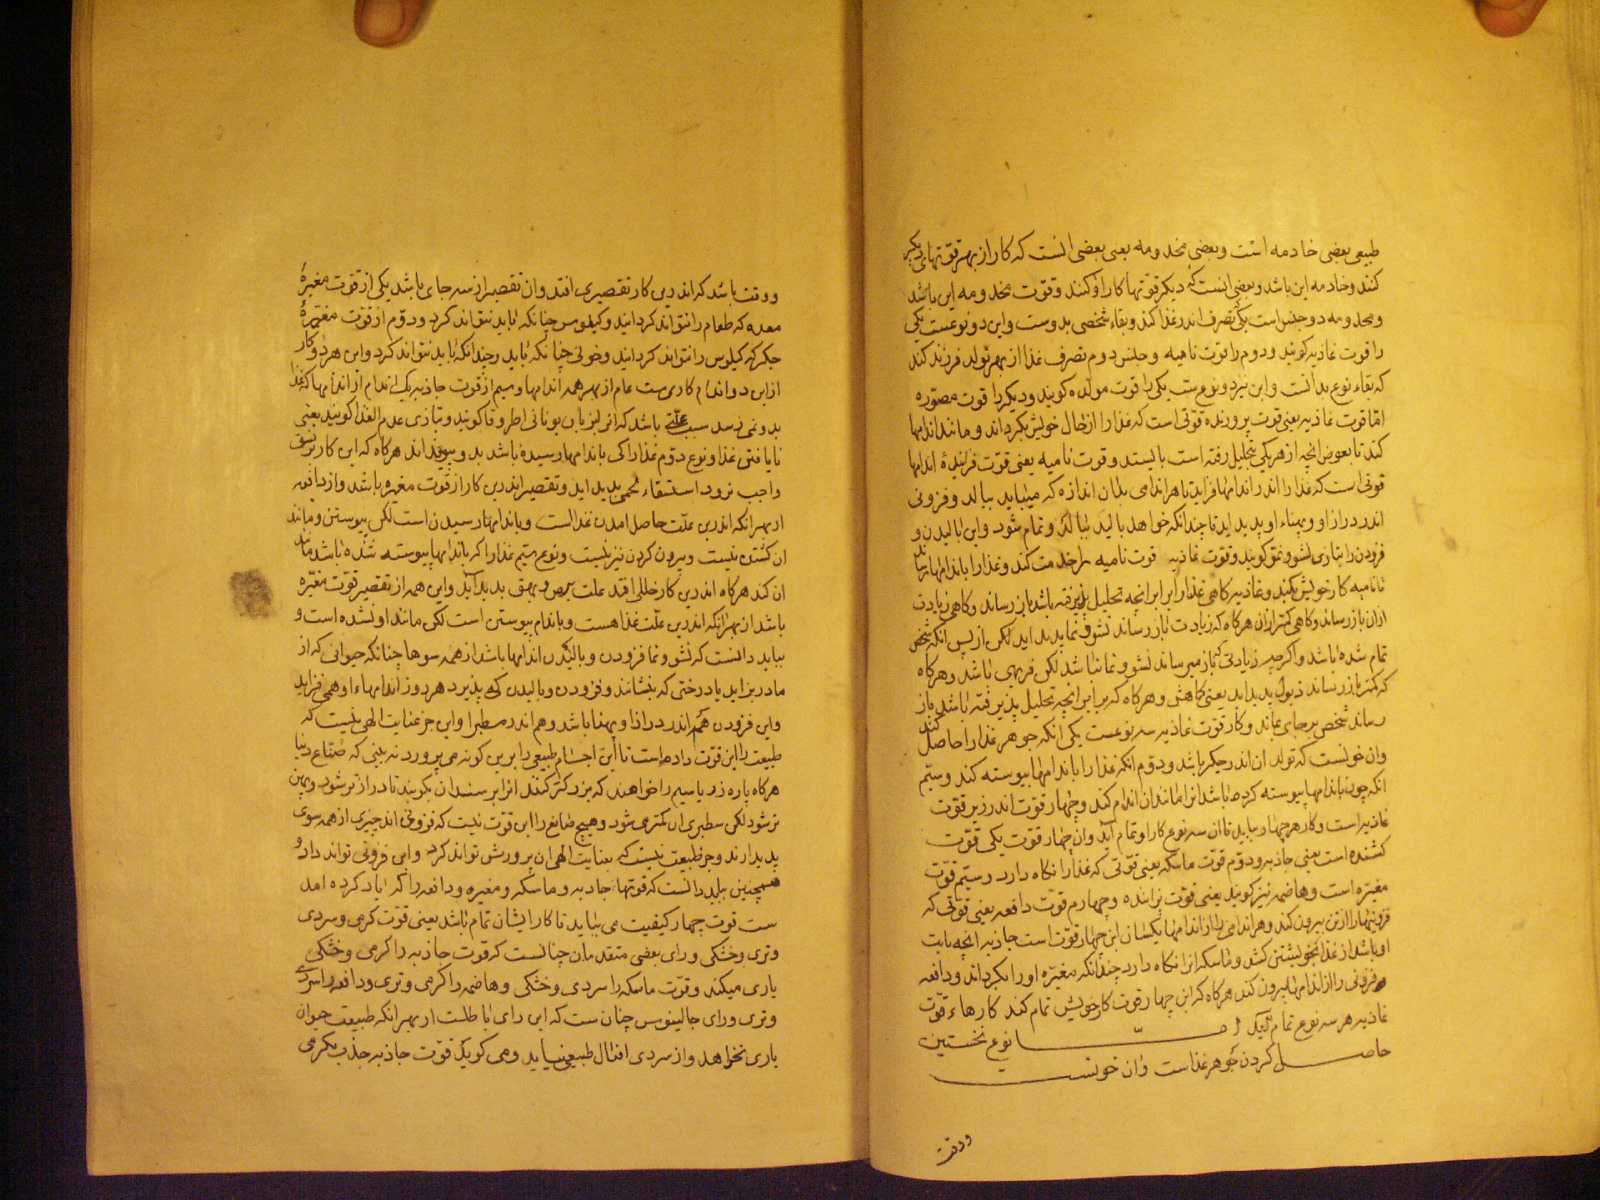 طبیعی بعضی خادمه است و بعضی مخدومه یعنی بعضی انست که کار از بهر قوّتهای دیکر
کنند و خادمه این باشد و بعضی انست که دیکر قوتها کار او کنند و قوت مخدومه این باشد
و مخدومه دو جنس است یکی تصرف اندر غذا کند و بقاء شخص بدوست و این دو نوعست یکی
را قوت غاذیه کویند و دوم را قوت نامیه و جنس دوم تصرف غذا از بهر تولد فرزند کند
که بقاء نوع بدانست و این نیز دو نوع ست یکی را قوت مولده کویند و دیکر را قوت مصوّره
امّا قوت غاذیه یعنی قوت پرورنده قوتی است که غذا را از حال خویش بکرداند و مانند اندامها
کند تا بعوض انچه از هر یکی بتحلیل رفته است بایستد و قوت نامیه یعنی قوّت فزایندۀ اندامها
قوتی است که غذا را اندر اندامها فزاید تا هر اندامی بدان اندازه که میباید ببالد و فزونی
اندر درازا و پهناء او پدید اید تا چندانکه خواهد بالید ببالد و تمام شود و این بالیدن و
فزودن را بتازی نشو و نمو کویند و قوت غاذیه قوت نامیه را خدمت کند و غذا را باندامها رساند
تا نامیه کار خویش بکند و غاذیه کاهی غذا را برابر انچه تحلیل پذیرفته باشد باز رساند و کاهی زیادت
ازان باز رساند و کاهی کمتر ازان هرکاه که زیادت باز رساند نشو و نما پدید اید لکن از پس انکه شخص
تمام شده باشد و اکرچه زیادتی که باز میرساند نشو و نما نباشد لکن فربهی باشد و هرکاه
که کمتر باز رساند ذبول پدید اید یعنی کاهش و هرکاه که برابر انچه تحلیل پذیرفته باشد باز
رساند شخص بر جای بماند و کار قوت غاذیه سه نوعست یکی انکه جوهر غذا را حاصل کند
وان خونست که تولد ان اندر جکر باشد و دوّم انکه غذا را باندامها پیوسته کند و سیّم
انکه چون باندامها پیوسته کرده باشد انرا مانند ان اندام کند و چهار قوّت اندر زیر قوّت
غاذیه است و کار هر چهار بباید تا ان سه نوع کار او تمام آید وان چهار قوّت یکی قوّت
کشنده است یعنی جاذبه و دوّم قوّت ماسکه یعنی قوّتی که غذا را نکاه دارد و سیّم قوّت
مغیّره است و هاضمه نیز کویند یعنی قوّت پزاننده و چهارم قوّت دافعه یعنی قوّتی که
فزونیها را از تن بیرون کند و هر اندامی را از اندامها یکسان این چهار قوّت است جاذبه انچه بابت
او باشد از غذا بخویشتن کشد و ماسکه انرا نکاه دارد چندانکه مغیّره او را بکرداند و دافعه
فزونی را از اندامها بیرون کند هرکاه که این چهار قوت کار خویش تمام کند کارهاء قوّت
غاذیه هر سه نوع تمام آید امّا نوع نخستین
حاصل کردن جوهر غذاست وان خونست
ووقت
ووقت باشد که اندرین کار تقصیری افتد وان تقصیر از سه جای باشد یکی از قوّت مغیرۀ
معده که طعام را نتواند کردانید و کیلوس چنانکه باید نتواند کرد و دوّم از قوّت مغیّرۀ
جکر که کیلوس را نتواند کردانید و خونی چنانکه باید و چندانکه باید نتواند کرد و این هر دو کار
ازین دو اندام کاری ست عام از بهر همه اندامها و سیم از قوت جاذبه یک اندام از اندامها که غذا
بدو نمی رسد سبب علّتی باشد که انرا بزبان یونانی اطروقا کویند و بتازی عدم الغذا کویند یعنی
نایافتن غذا و نوع دوّم غذا را کی باندامها رسیده باشد بدو پیونداند هرکاه که این کار برنسق
واجب نرود استسقاء لحمی پدید اید و تقصیر اندرین کار از قوّت مغیره باشد و از دافعه
از بهر انکه اندرین علّت حاصل امدن غذاست و باندامها رسیدن است لکن پیوستن و مانند
ان کشتن نیست و بیرون کردن نیز نیست و نوع سیّم غذا را که باندامها پیوسته شده باشد مانند
ان کند هرکاه اندرین کار خللی افتد علت برص و بهق پدید آید و این همه از تقصیر قوّت مغیّره
باشد از بهر انکه اندرین علّت غذا هست و باندام پیوستن است لکن مانند او نشده است و
بباید دانست که نشو و نما فزودن و بالیدن اندامها باشد از همه سوها چنانکه حیوانی که از
مادر بزاید یا درختی که بنشانند و فزودن و بالیدن کی پذیرد هر روز اندامهاء او همی فزاید
و این فزودن هم اندر درازا و پهنا باشد و هم اندر سطبرا و این جز عنایت الهی نیست که
طبیعت را این قوّت داده است تا این اجسام طبیعی را برین کونه می پرورد نه بینی که صنّاع دنیا
هرکاه پاره زر یا سیم را خواهند که بزرکتر کنند انرا بر سندان بکوبند تا درازتر شود و پهن
تر شود لکن سطبری ان کمتر می شود و هیچ صانع را این قوّت نیست که فزونی اندر چیزی از همه سوی
پدید ارند و جز طبیعت نیست که بعنایت الهی ان پرورش تواند کرد و این فزونی تواند داد و
همچنین بباید دانست که قوتهاء جاذبه و ماسکه و مغیره و دافعه را که یاد کرده امد
ست قوت چهار کیفیت می بباید تا کار ایشان تمام باشد یعنی قوّت کرمی و سردی
وتری و خشکی و رای بعضی متقدمان چنانست که قوت جاذبه را کرمی و خشکی
یاری میکند و قوّت ماسکه را سردی و خشکی و هاضمه را کرمی و تری و دافعه را سردی
وتری و رای جالینوس چنان ست که این رای باطلست از بهر انکه طبیعت حیوان
یاری نخواهد و از سردی افعال طبیعی نیاید و می کوید قوّت جاذبه جذب بکرمی